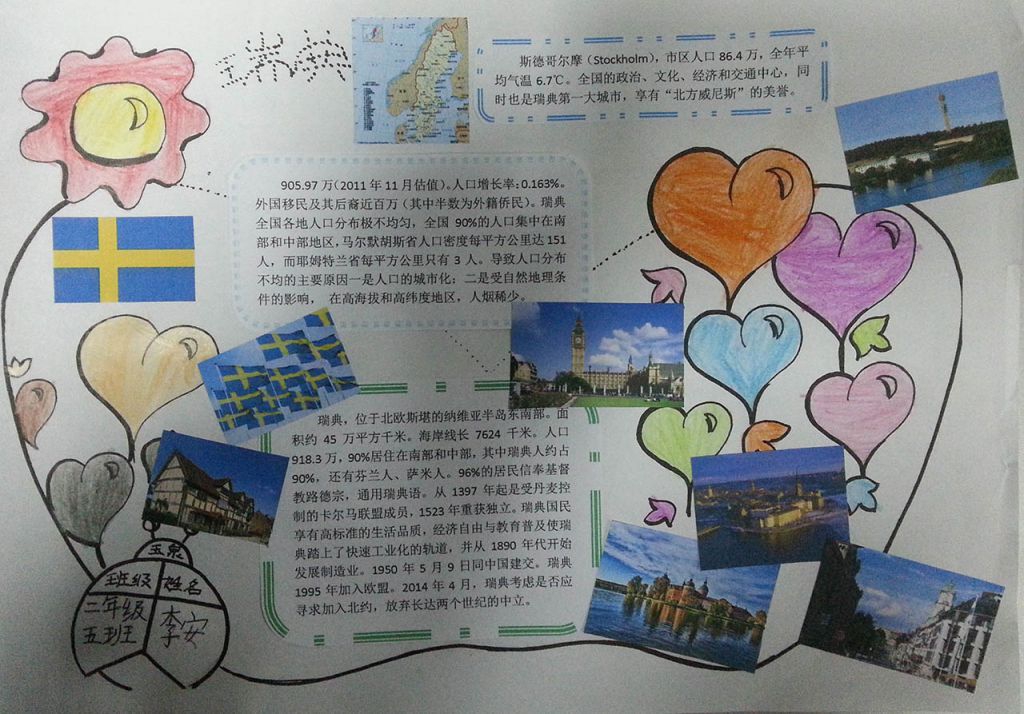 瑞典
斯德哥尔摩（Stockholm），市区人口 86.4 万，全年平
均气温 6.7℃。全国的政治、文化、经济和交通中心，同
时也是瑞典第一大城市，享有“北方威尼斯”的美誉。
905.97 万（2011 年 11 月估值）。人口增长率：0.163%。
外国移民及其后裔近百万（其中半数为外籍侨民）。瑞典
全国各地人口分布极不均匀，全国 90%的人口集中在南
部和中部地区，马尔默胡斯省人口密度每平方公里达 151
人，而耶姆特兰省每平方公里只有 3 人。导致人口分布
不均的主要原因一是人口的城市化；二是受自然地理条
件的影响， 在高海拔和高纬度地区，人烟稀少。
瑞典，位于北欧斯堪的纳维亚半岛东南部。面
积约 45 万平方千米。海岸线长 7624 千米。人口
918.3 万，90%居住在南部和中部，其中瑞典人约占
90%， 还有芬兰人、萨米人。96%的居民信奉基督
教路德宗，通用瑞典语。从 1397 年起是受丹麦控
制的卡尔马联盟成员，1523 年重获独立。瑞典国民
享有高标准的生活品质，经济自由与教育普及使瑞
典踏上了快速工业化的轨道，并从 1890 年代开始
发展制造业。1950 年 5 月 9 日同中国建交。瑞典
1995 年加入欧盟。2014 年 4 月，瑞典考虑是否应
寻求加入北约，放弃长达两个世纪的中立。
玉泉
班级 姓名
二年级
五班
李安